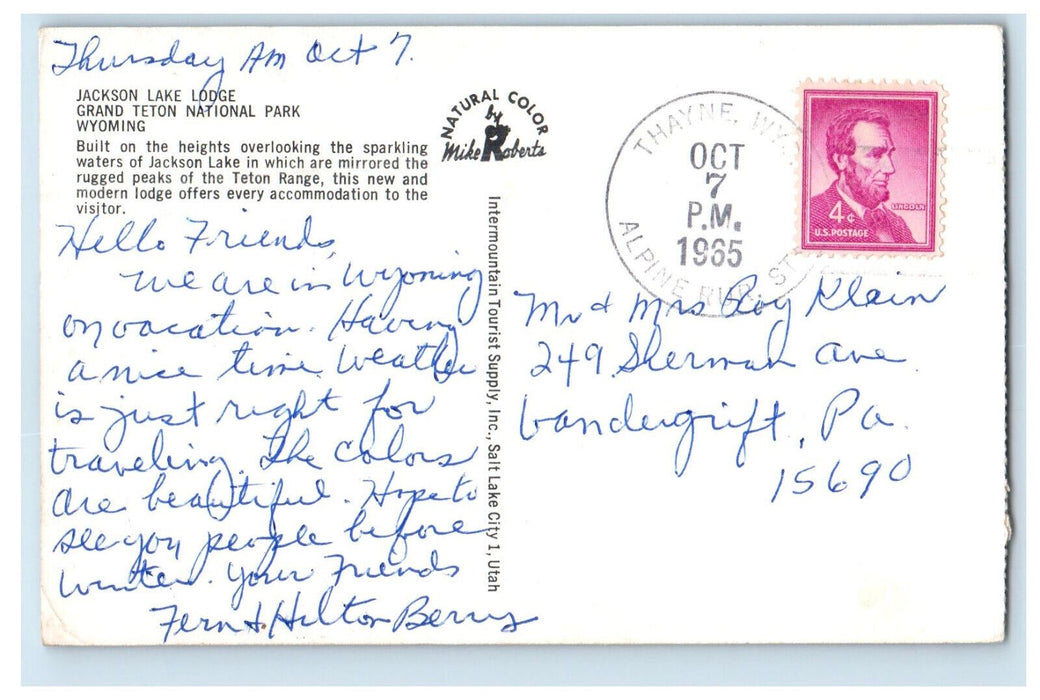 Thursday AM Oct 7.
JACKSON LAKE LODGE
GRAND TETON NATIONAL PARK
WYOMING
Built on the heights overlooking the sparkling
waters of Jackson Lake in which are mirrored the
rugged peaks of the Teton Range, this new and
modern lodge offers every accommodation to the
visitor.
Hello Friends,
We are in Wyoming
on vacation. Having
a nice time. Weather
is just right for
traveling. The colors
are beautiful. Hope to
see you people before
winter. Your Friends
Fern & Hilton Berry
NATURAL COLOR
by
Mike Roberts
Intermountain Tourist Supply, Inc., Salt Lake City 1, Utah
THAYNE, WY
OCT
7
P.M.
1965
ALPINE RUR. ST
LINCOLN
4¢
U.S. POSTAGE
Mr & Mrs Roy Klein
249 Sherman Ave
Vandergrift, Pa.
15690